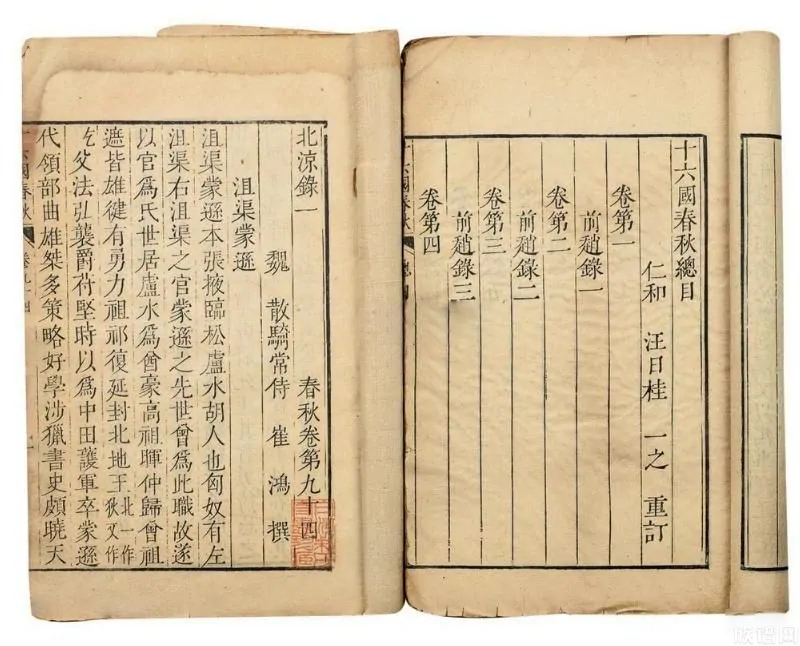 十六國春秋總目
仁和 汪日桂 一之 重訂
卷第一
前趙錄一
卷第二
前趙錄二
卷第三
前趙錄三
卷第四
六國春秋 總目
北涼錄一 春秋卷第九十四
魏 散騎常侍 崔鴻 撰
沮渠蒙遜
沮渠蒙遜本張掖臨松盧水胡人也匈奴有左
沮渠右沮渠之官蒙遜之先世曾爲此職故遂
以官爲氏世居盧水爲酋豪高祖暉仲歸曾祖
遮皆雄健有勇力祖祁復延封北地王北一作狄又作
乞父法弘襲爵苻堅時以爲中田護軍卒蒙遜
代領部曲雄桀多策略好學涉獵書史頗曉天
六國春秋 卷九十四 一
族譜网